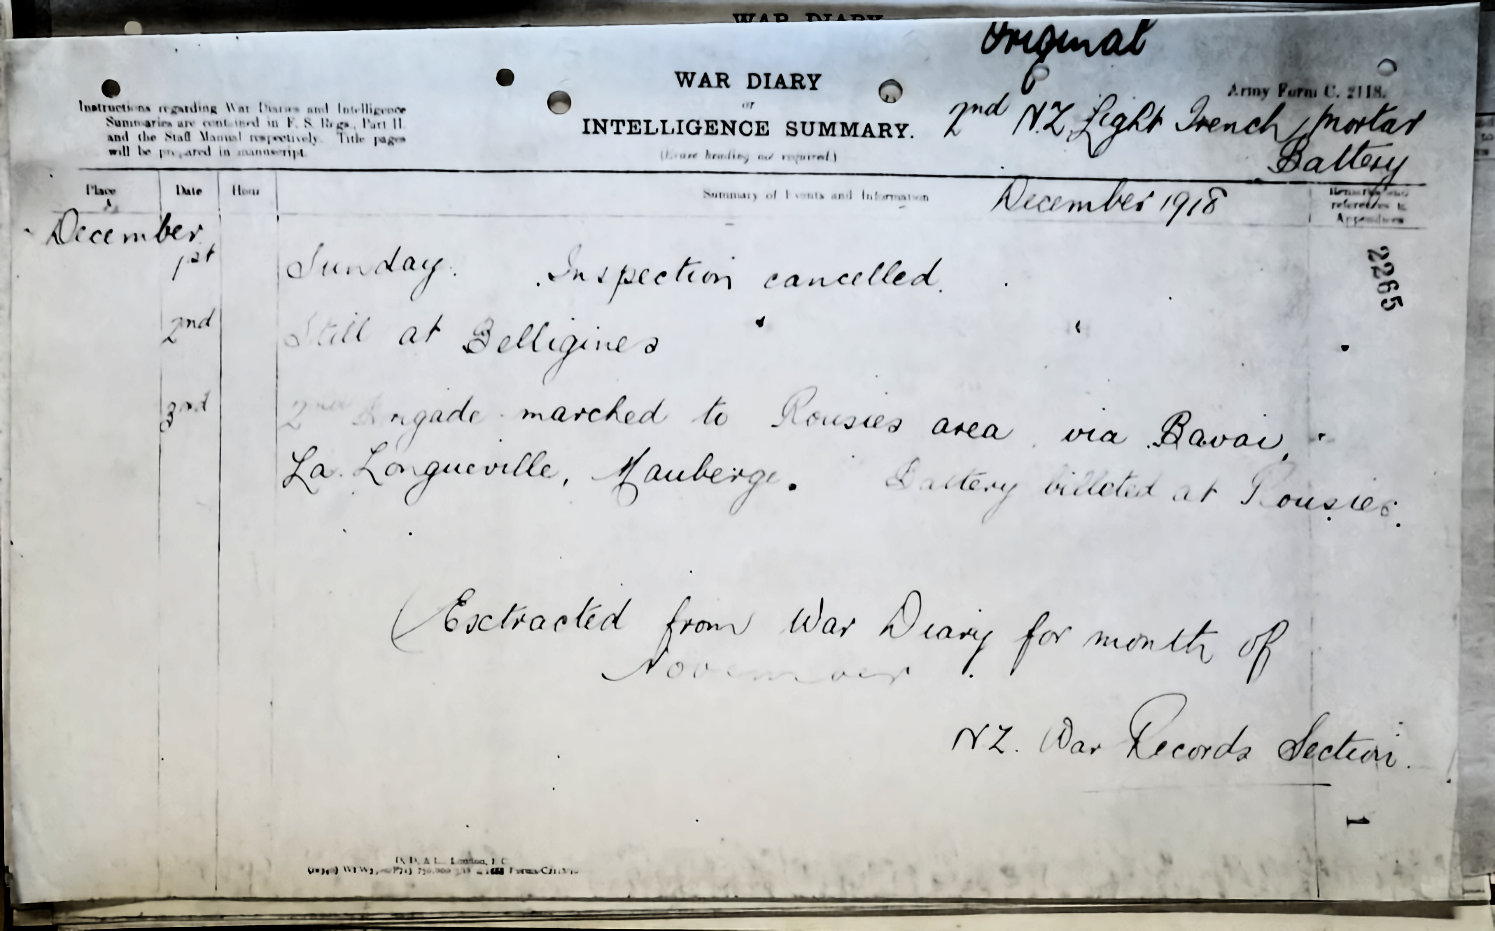 WAR DIARY
Original
WAR DIARY
or
INTELLIGENCE SUMMARY.
(Erase heading not required)
Instructions regarding War Diaries and Intelligence
Summaries are contained in F. S. Regs., Part II.
and the Staff Manual respectively. Title pages
will be prepared in manuscript.
Army Form C. 2118.
2nd N.Z Light Trench Mortar
Battery
Place
Date
Hour
Summary of Events and Information
December 1918
Remarks and
references to
Appendices
December
1st Sunday. Inspection cancelled.
2265
2nd Still at Belligines
3rd 2nd Brigade marched to Rousies area via Bavai,
La Longueville, Mauberge. Battery billeted at Rousies.
(Extracted from War Diary for month of
November.
N Z. War Records Section.
1
D. D. & L., London, E.C.